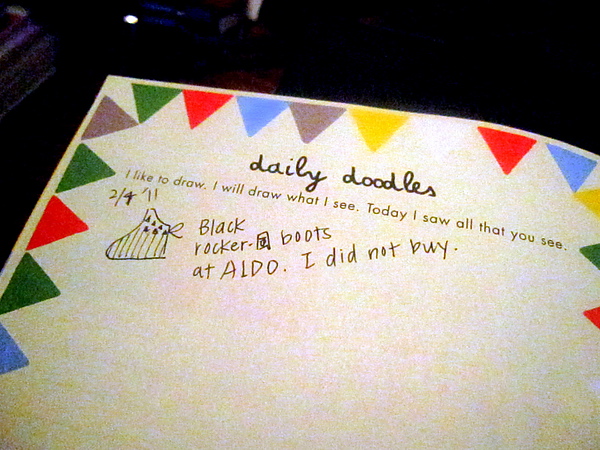 daily doodles
I like to draw. I will draw what I see. Today I saw all that you see.
2/4 '11
Black
rocker-風 boots
at ALDO. I did not buy.